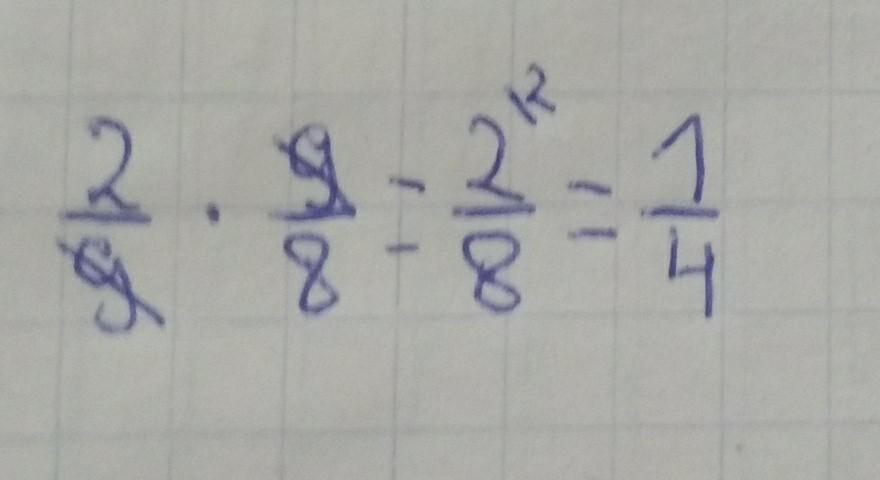 2/9 · 9/8 = 2/8 = 1/4